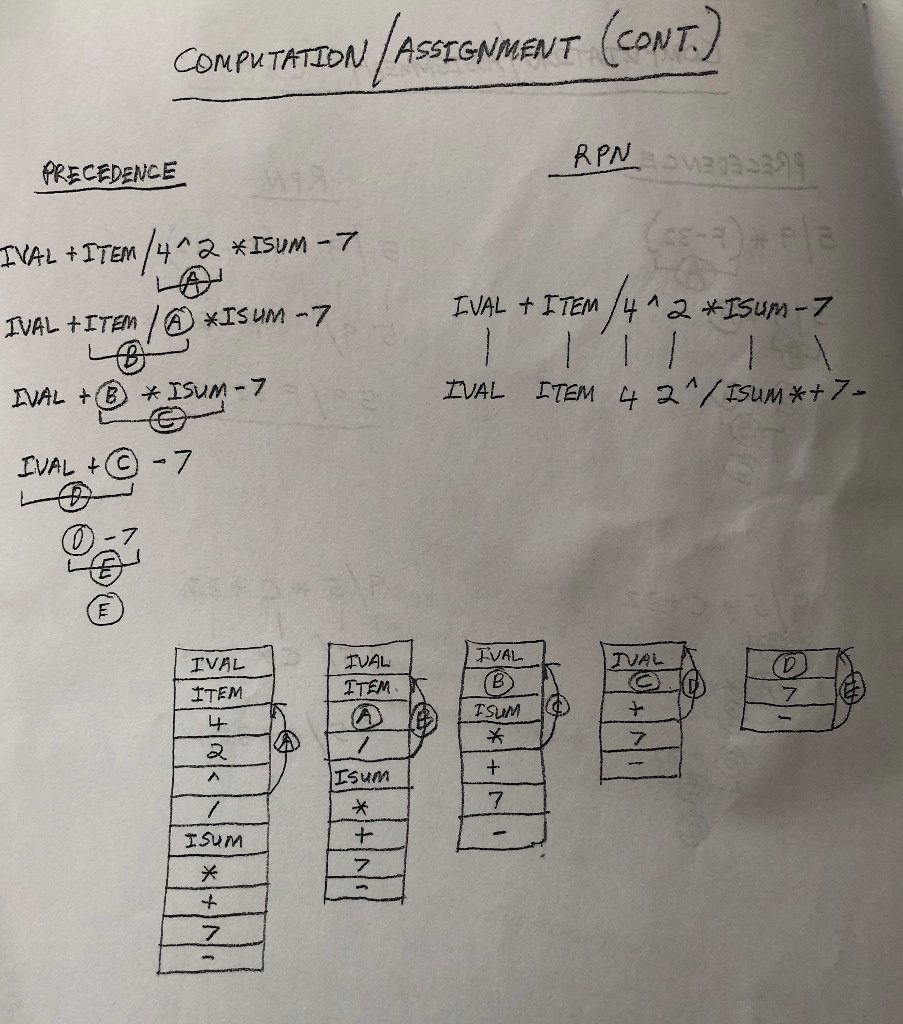 COMPUTATION/ASSIGNMENT (CONT.)
PRECEDENCE
IVAL + ITEM/4^2 *ISUM-7
A
IVAL + ITEM/A *ISUM-7
B
IVAL + B * ISUM-7
C
IVAL + C - 7
D
D - 7
E
E
RPN
IVAL + ITEM/4^2 *ISUM-7
IVAL ITEM 4 2^/ISUM*+7-
IVAL
ITEM
4
2
^
/
ISUM
*
+
7
-
A
IVAL
ITEM.
A
/
ISUM
*
+
7
-
B
IVAL
B
ISUM
*
+
7
-
C
IVAL
C
+
7
-
D
D
7
-
E